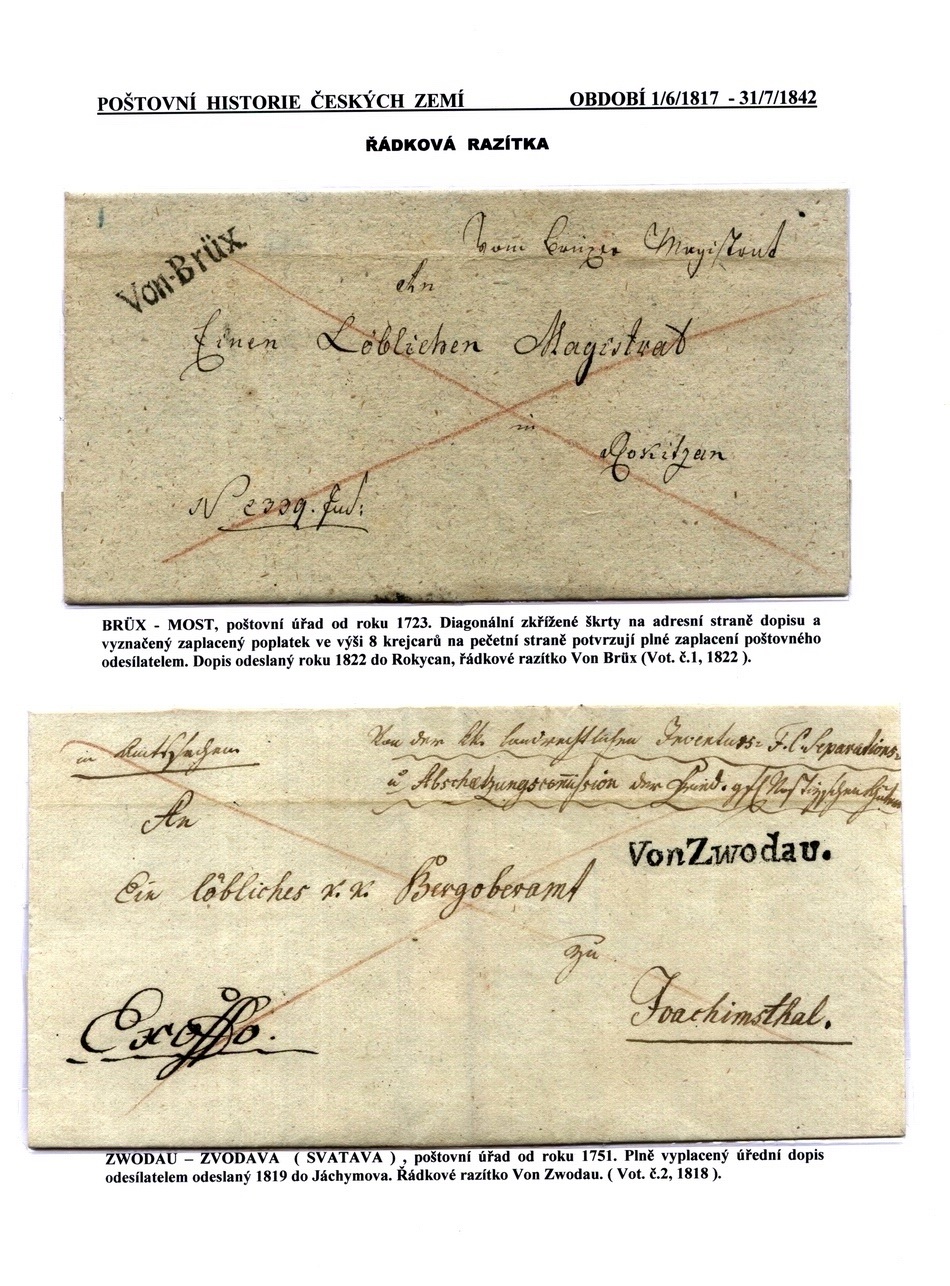 POŠTOVNÍ HISTORIE ČESKÝCH ZEMÍ OBDOBÍ 1/6/1817 - 31/7/1842
ŘÁDKOVÁ RAZÍTKA
Von Brüx
Vom Brüxer Magistrat
An
Einen Löblichen Magistrat
in
Rokitzan
N 2339. Jud:
BRÜX - MOST, poštovní úřad od roku 1723. Diagonální zkřížené škrty na adresní straně dopisu a
vyznačený zaplacený poplatek ve výši 8 krejcarů na pečetní straně potvrzují plné zaplacení poštovného
odesílatelem. Dopis odeslaný roku 1822 do Rokycan, řádkové razítko Von Brüx (Vot. č.1, 1822 ).
in Amtssachen
Von der kk. landrechtlichen Inventurs= F.C. Separations=
u Abschätzungscommission der
An
Von Zwodau.
Ein löbliches k. k. Bergoberamt
zu
Joachimsthal.
Exoffo.
ZWODAU – ZVODAVA ( SVATAVA ) , poštovní úřad od roku 1751. Plně vyplacený úřední dopis
odesílatelem odeslaný 1819 do Jáchymova. Řádkové razítko Von Zwodau. ( Vot. č.2, 1818 ).